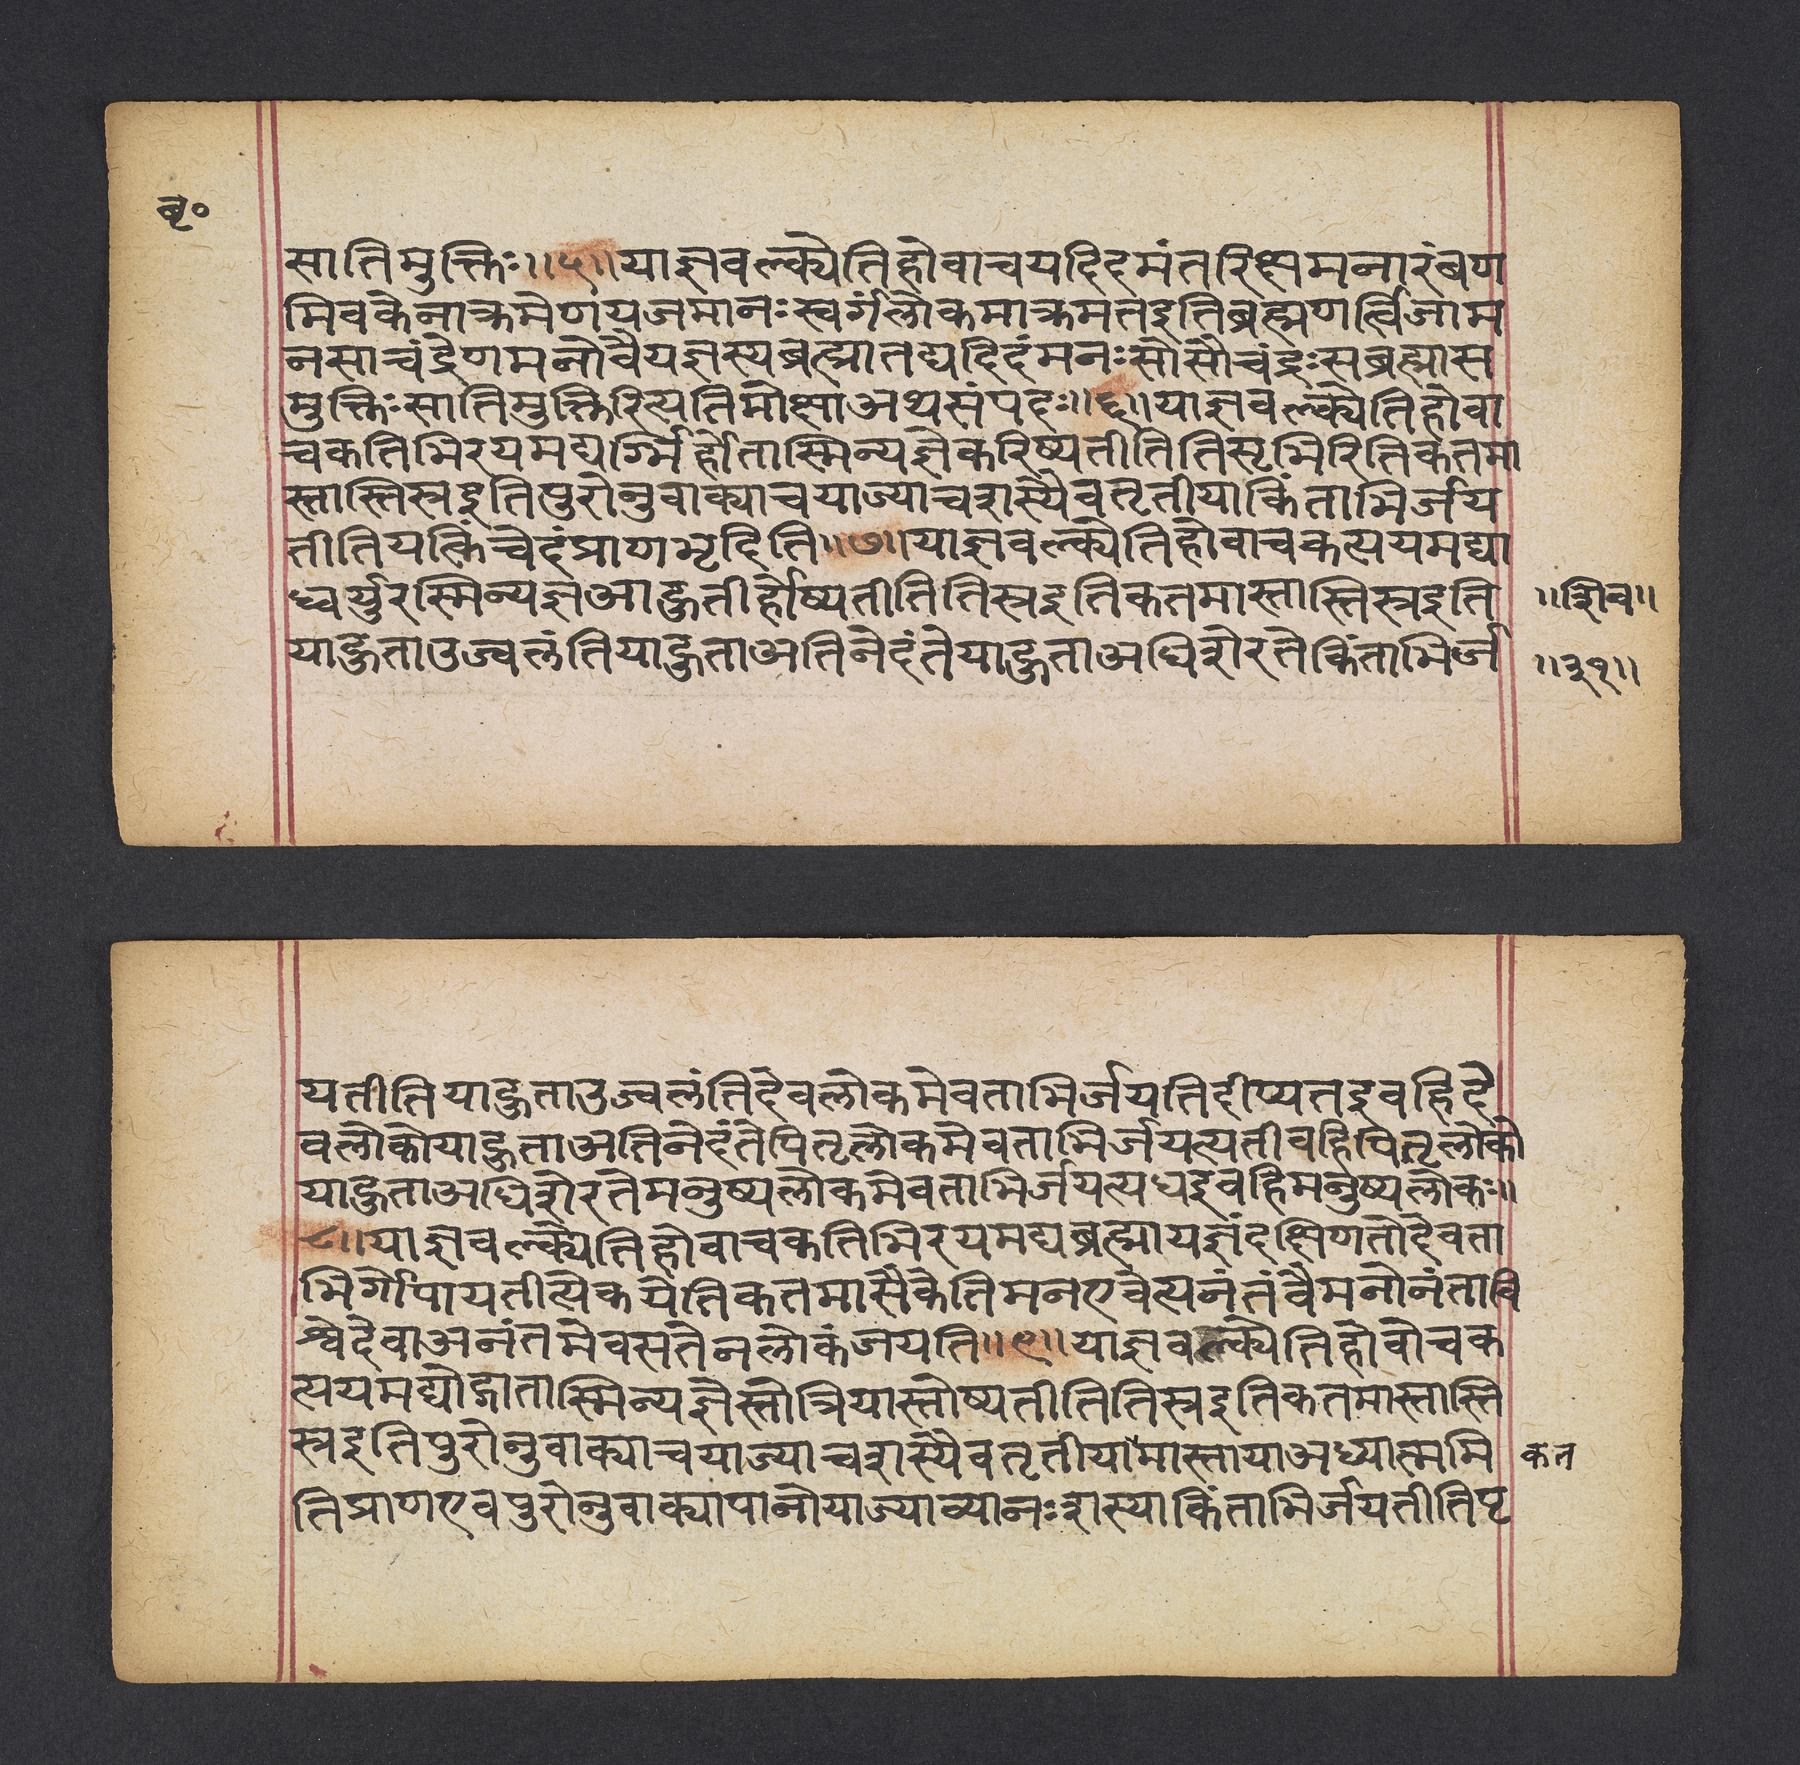 बृ०
सातिमुक्तिः॥५॥याज्ञवल्क्येतिहोवाचयदिदमंतरिक्षमनारंबण
मिवकेनाक्रमेणयजमानःस्वर्गंलोकमाक्रमतइतिब्रह्मणर्त्विजाम
नसाचंद्रेणमनोवैयज्ञस्यब्रह्मातद्यदिदंमनःसोसौचंद्रःसब्रह्मास
मुक्तिःसातिमुक्तिरित्यतिमोक्षाअथसंपदः॥६॥याज्ञवल्क्येतिहोवा
चकतिभिरयमद्यर्ग्भिर्होतास्मिन्यज्ञेकरिष्यतीतितिसृभिरितिकतमा
स्तास्तिस्रइतिपुरोनुवाक्याचयाज्याचशस्यैवतृतीयाकिंताभिर्जय
तीतियत्किंचेदंप्राणभृदिति॥७॥याज्ञवल्क्येतिहोवाचकत्ययमद्या
ध्वर्युरस्मिन्यज्ञआहुतीर्होष्यतीतितिस्रइतिकतमास्तास्तिस्रइति
॥शिव॥
याहुताउज्वलंतियाहुताअतिनेदंतेयाहुताअधिशेरतेकिंताभिर्ज
॥३१॥
यतीतियाहुताउज्वलंतिदेवलोकमेवताभिर्जयतिदीप्यतइवहिदे
वलोकोयाहुताअतिनेदंतेपितृलोकमेवताभिर्जयत्यतीवहिपितृलोको
याहुताअधिशेरतेमनुष्यलोकमेवताभिर्जयत्यधइवहिमनुष्यलोकः॥
८॥याज्ञवल्क्येतिहोवाचकतिभिरयमद्यब्रह्मायज्ञंदक्षिणतोदेवता
भिर्गोपायतीत्येकयेतिकतमासैकेतिमनएवेत्यनंतंवैमनोनंतावि
श्वेदेवाअनंतमेवसतेनलोकंजयति॥९॥याज्ञवल्क्येतिहोवोचक
त्ययमद्योद्गातास्मिन्यज्ञेस्तोत्रियास्तोष्यतीतितिस्रइतिकतमास्तास्ति
स्रइतिपुरोनुवाक्याचयाज्याचशस्यैवतृतीयामास्तायाअध्यात्ममि
कत
तिप्राणएवपुरोनुवाक्यापानोयाज्याव्यानःशस्याकिंताभिर्जयतीतिपृ